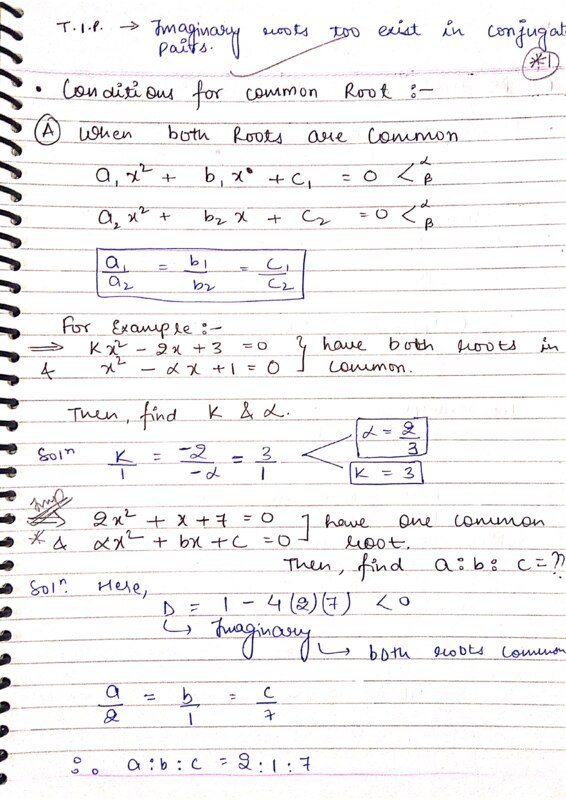 T.I.P. → Imaginary roots too exist in conjugat
pairs.
*1
• Conditions for common Root :-
(A) When both Roots are Common
a₁x² + b₁x + c₁ = 0 < α β
a₂x² + b₂x + c₂ = 0 < α β
a₁/a₂ = b₁/b₂ = c₁/c₂
For Example :-
⇒ Kx² - 2x + 3 = 0 } have both roots in
& x² - αx + 1 = 0 } common.
Then, find K & α.
Solⁿ K/1 = -2/-α = 3/1 < α = 2/3
K = 3
Imp
⇒ 2x² + x + 7 = 0 ] have one common
* & αx² + bx + c = 0 ] root.
Then, find a:b:c = ??
Solⁿ. Here,
D = 1 - 4(2)(7) < 0
↳ Imaginary
↳ both roots common
a/2 = b/1 = c/7
∴ a:b:c = 2:1:7